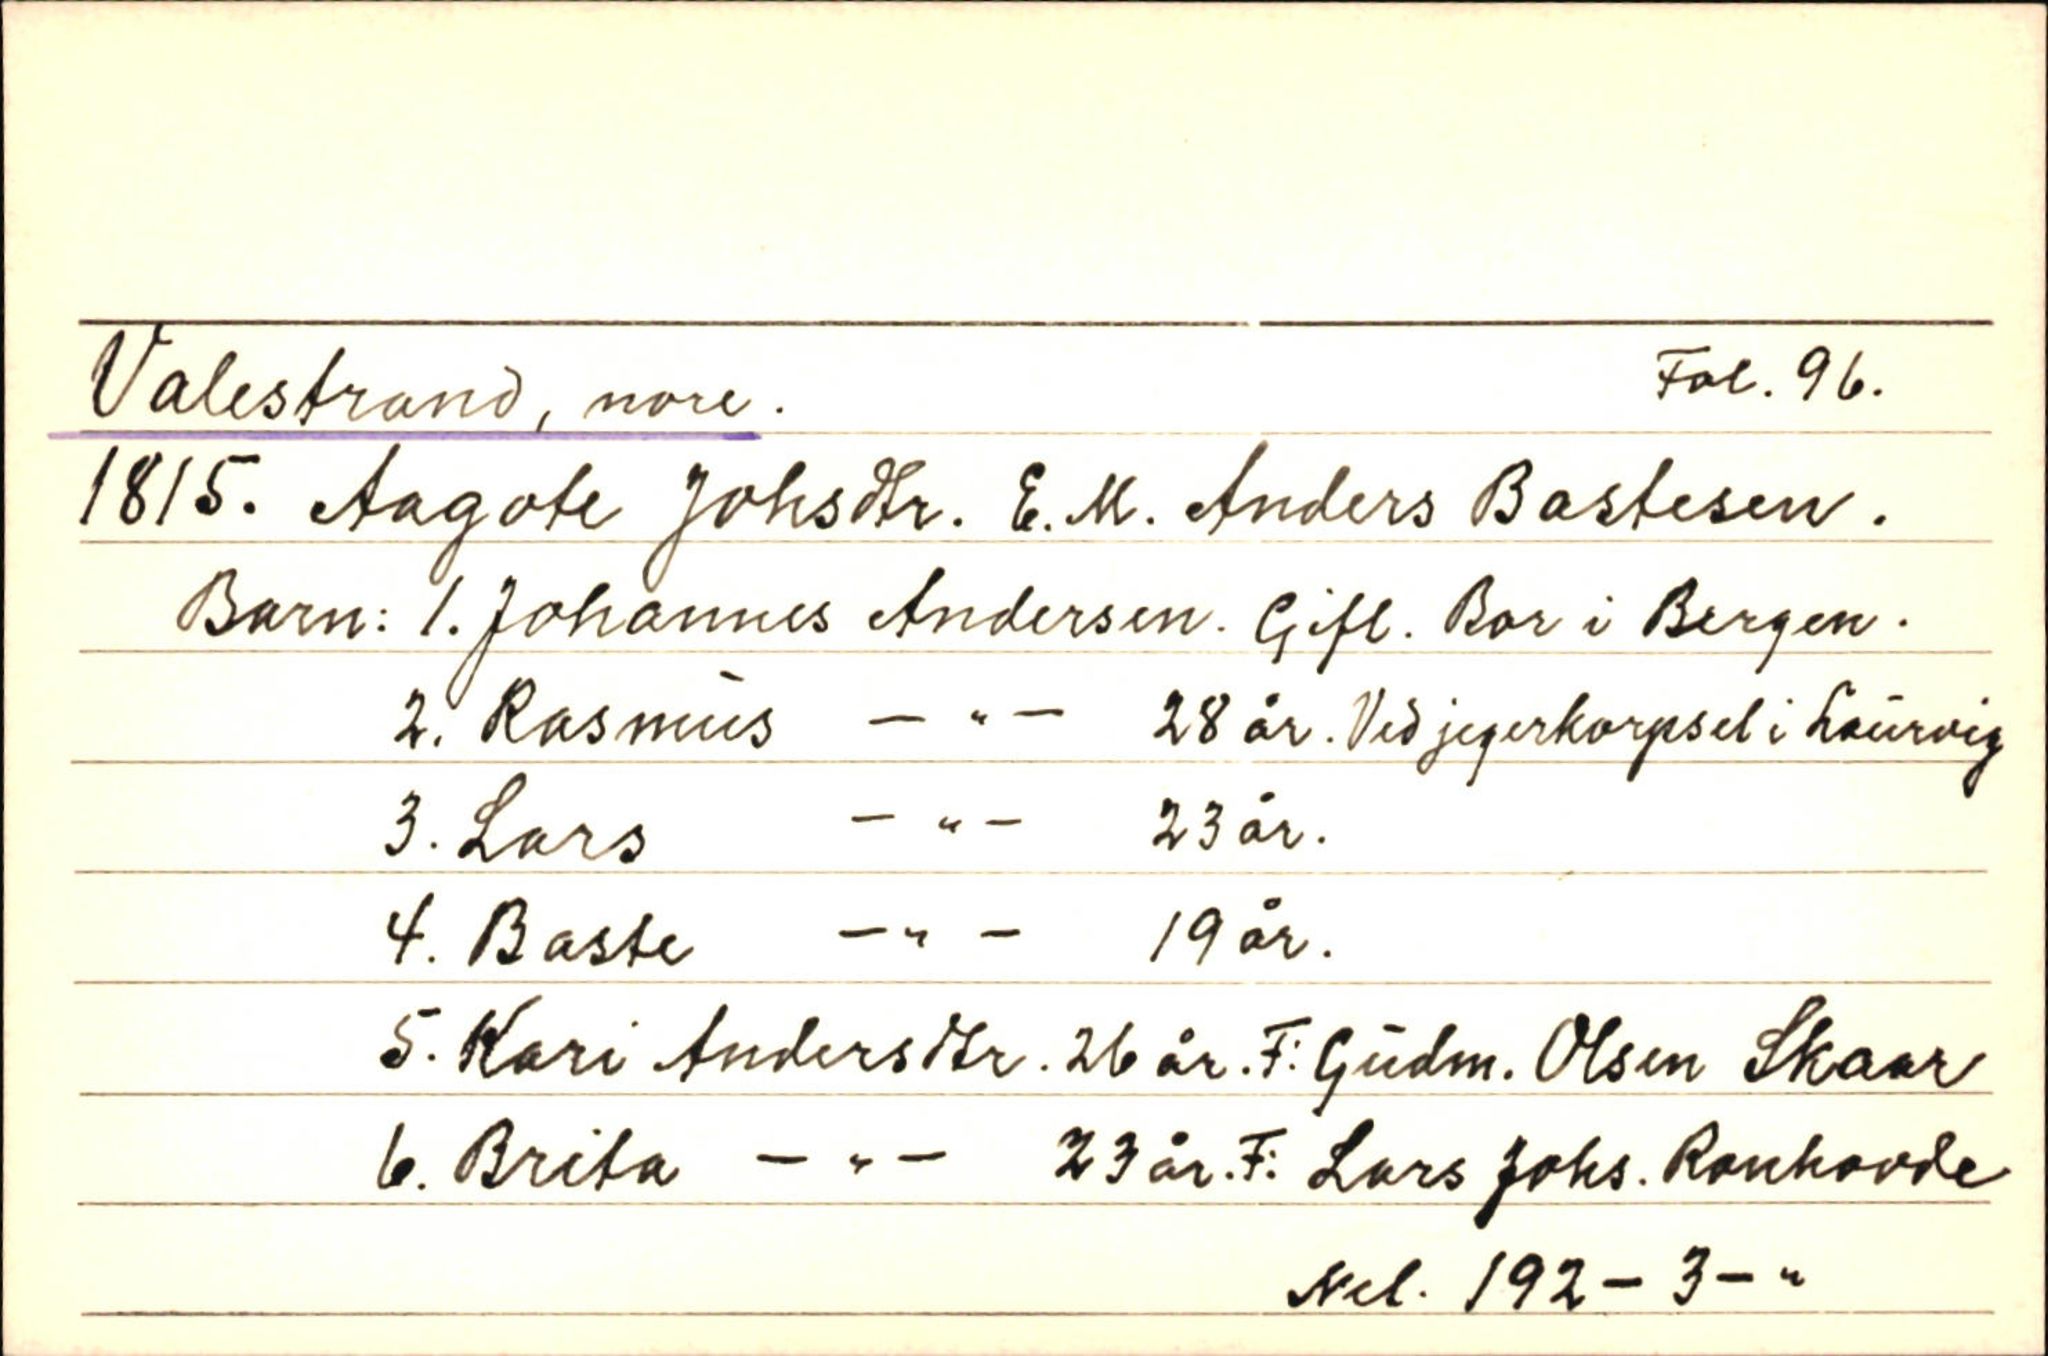 Valestrand, nore. Fol. 96.
1815. Aagote Johsdtr. E. M. Anders Bastesen.
Barn: 1. Johannes Andersen. Gift. Bor i Bergen.
2. Rasmus — " — 28 år. Ved jegerkorpset i Laurvig
3. Lars — " — 23 år.
4. Baste — " — 19 år.
5. Kari Andersdtr. 26 år. F: Gudm. Olsen Skaar
6. Brita — " — 23 år. F: Lars Johs. Ronhovde
Net. 192 - 3 - "